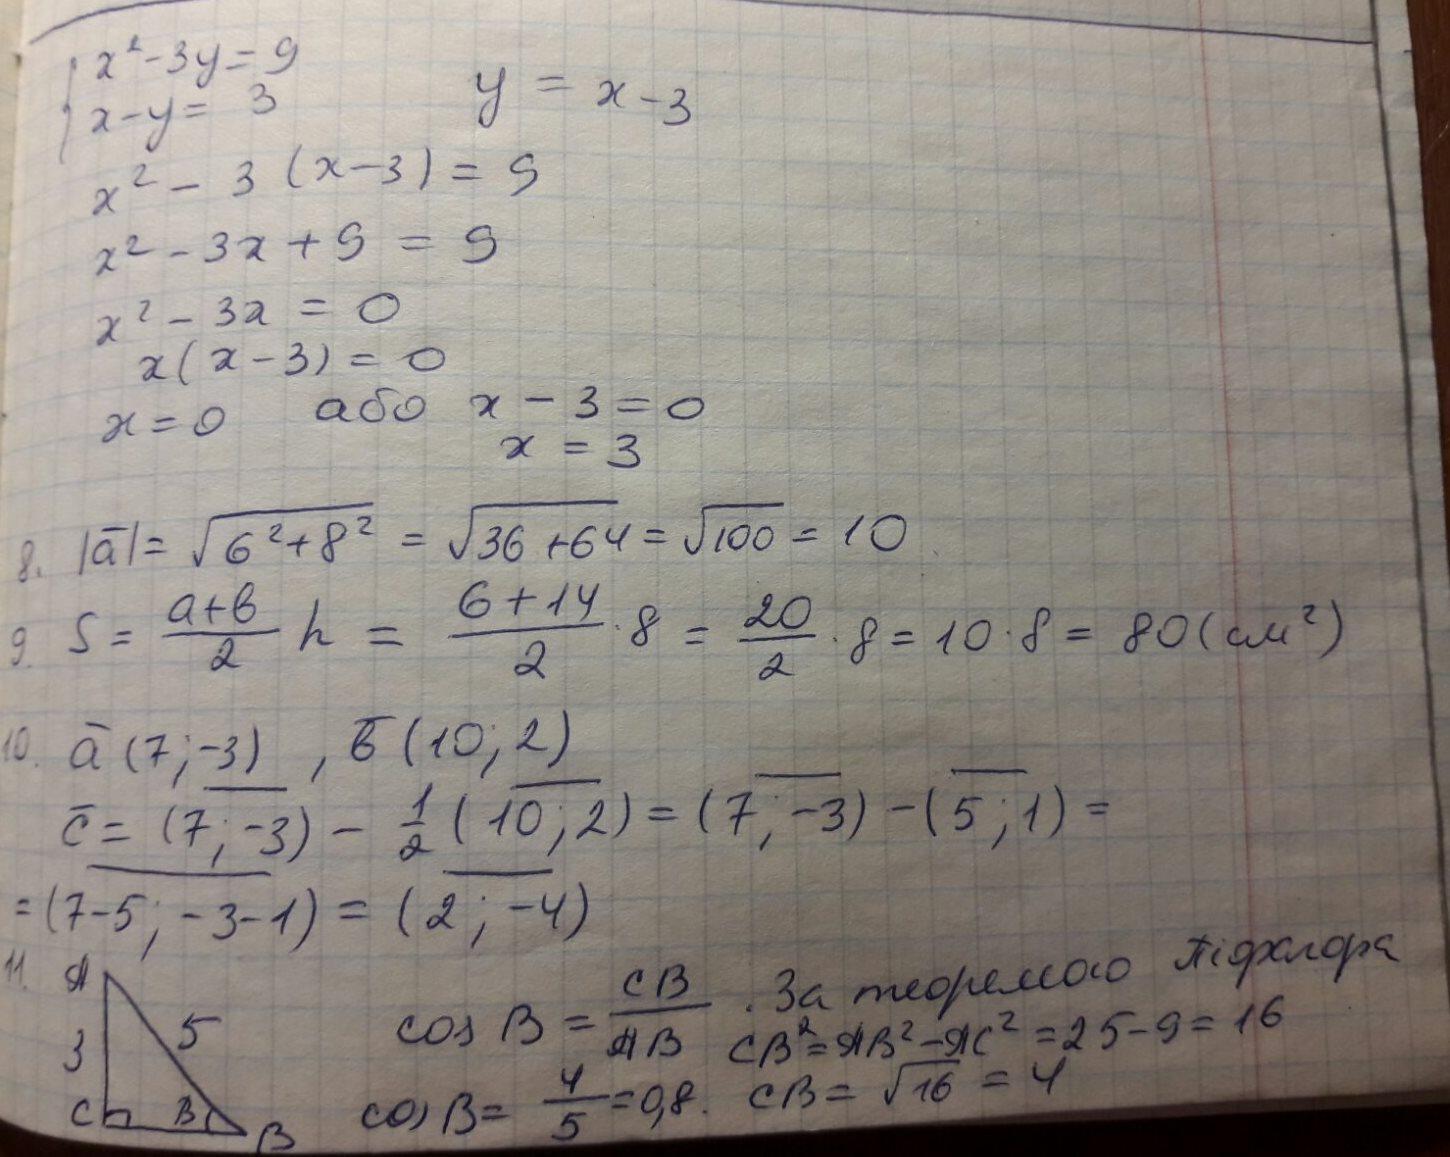 x² - 3y = 9
x - y = 3    y = x - 3
x² - 3(x - 3) = 9
x² - 3x + 9 = 9
x² - 3x = 0
x(x - 3) = 0
x = 0 або x - 3 = 0
x = 3
8. |a̅| = √(6² + 8²) = √(36 + 64) = √100 = 10
9. S = (a+b)/2 h = (6+14)/2 · 8 = 20/2 · 8 = 10 · 8 = 80 (см²)
10. a̅ (7; -3), b̅ (10; 2)
c̅ = (7; -3) - 1/2 (10; 2) = (7; -3) - (5; 1) =
= (7-5; -3-1) = (2; -4)
11. A 3 5 C B B
cos B = CB/AB . За теоремою Піфагора
CB² = AB² - AC² = 25 - 9 = 16
cos B = 4/5 = 0,8. CB = √16 = 4